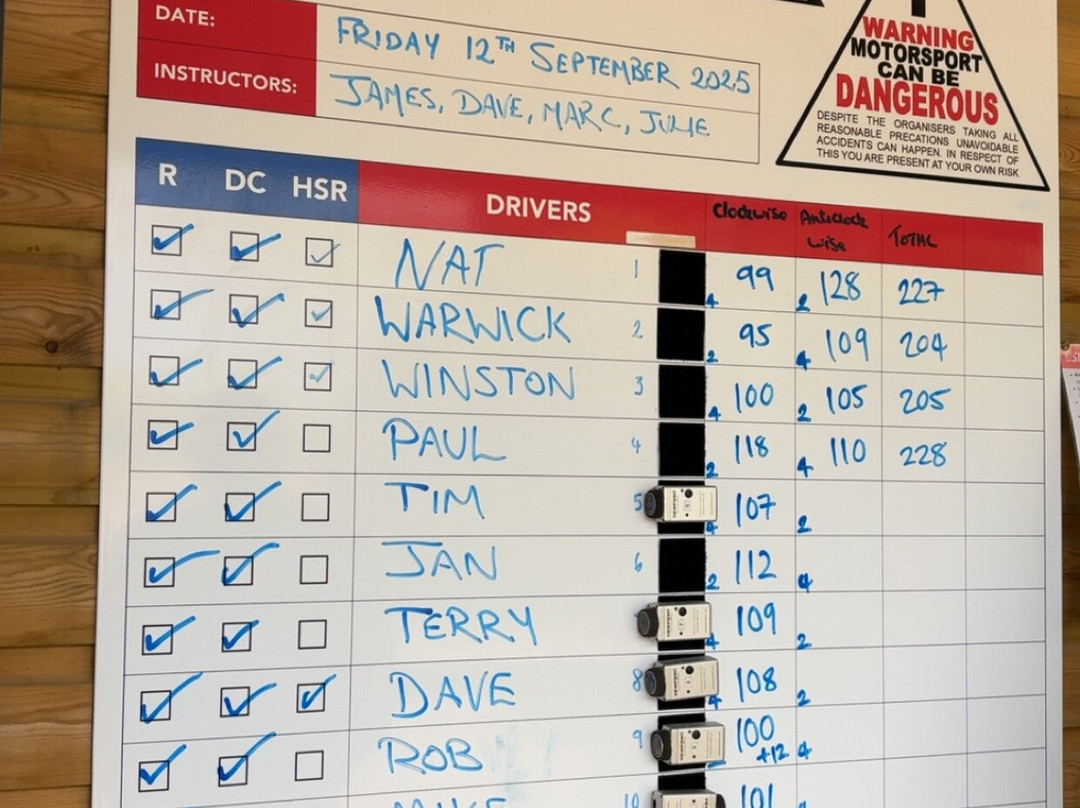 DATE: FRIDAY 12TH SEPTEMBER 2025
INSTRUCTORS: JAMES, DAVE, MARC, JULIE
WARNING
MOTORSPORT
CAN BE
DANGEROUS
DESPITE THE ORGANISERS TAKING ALL
REASONABLE PRECATIONS UNAVOIDABLE
ACCIDENTS CAN HAPPEN. IN RESPECT OF
THIS YOU ARE PRESENT AT YOUR OWN RISK
R DC HSR DRIVERS Clockwise Anticlock wise TOTAL
NAT 1 4 99 2 128 227
WARWICK 2 2 95 4 109 204
WINSTON 3 4 100 2 105 205
PAUL 4 2 118 4 110 228
TIM 5 4 107 2
JAN 6 2 112 4
TERRY 4 109 2
DAVE 8 4 108 2
ROB 9 100 +12 4
MIKE 10 101